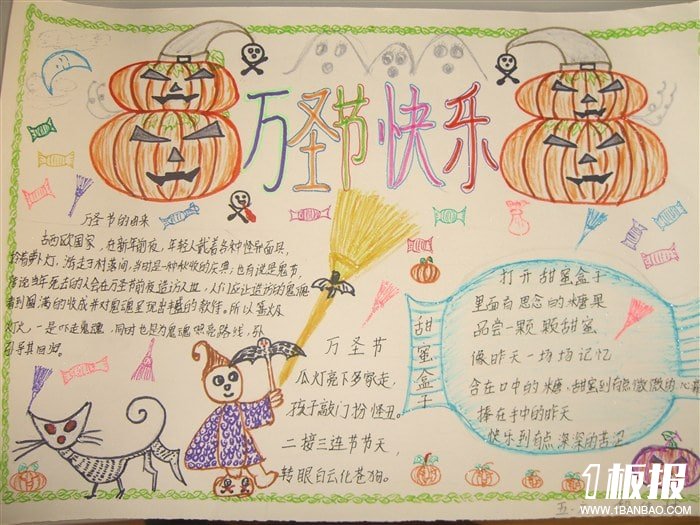 万圣节快乐
万圣节的由来
古西欧国家，在新年前夜，年轻人戴着各种怪异面具，
拎着萝卜灯，游走于村落间，当时是一种秋收的庆典；也有说是鬼节，
传说当年死去的人会在万圣前夜造访人世，人们应让造访的鬼魂
看到圆满的收成并对鬼魂呈现出丰盛的款待。所以篝火及
灯火，一是吓走鬼魂，同时也是为鬼魂照亮路线，
引导其回归。
万圣节
瓜灯亮下多家走，
孩子敲门扮怪丑。
二接三连节节天，
转眼白云化苍狗。
甜蜜盒子
打开甜蜜盒子
里面有思念的糖果
品尝一颗颗甜蜜
像昨天一场场记忆
含在口中的糖，甜蜜到有点微微的心
捧在手中的昨天
快乐到有点深深的苦涩
五.
1板报
WWW.1BANBAO.COM